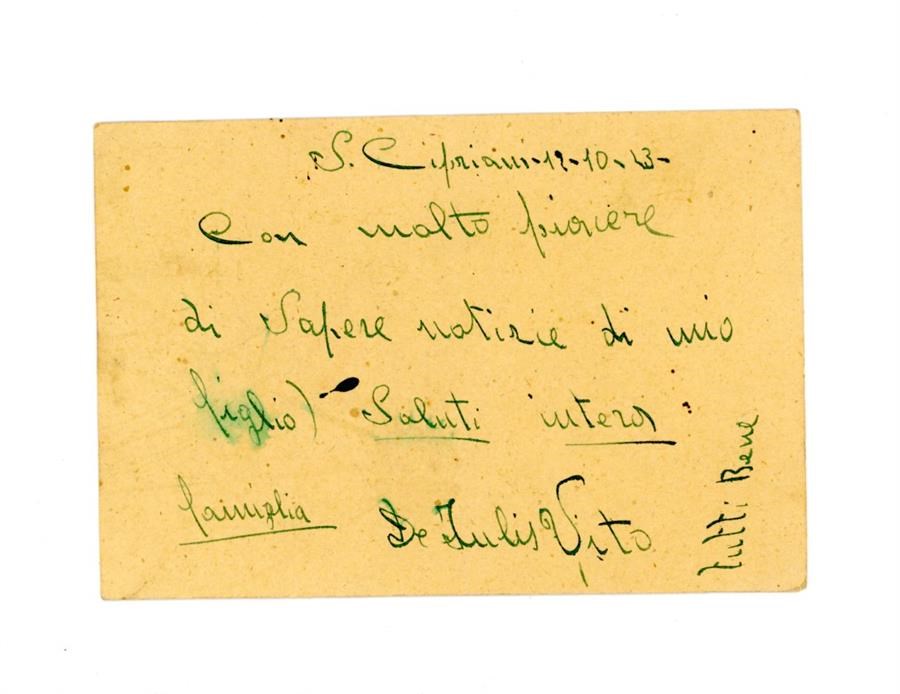 S. Cipriani-12-10-43-
Con molto piacere
di Sapere notizie di mio
figlio) Saluti intera
famiglia De Iulis Vito
Tutti Bene